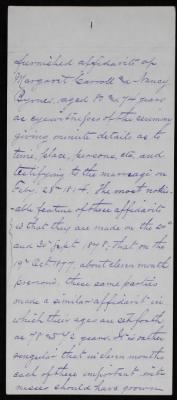 furnished affidavits of
Margaret Carroll & Nancy
Byrnes, aged 80 & 74 years
as eyewitnesses of the ceremony
giving minute details as to
time, place, persons, etc, and
testifying to the marriage on
Feby 28th 1814. The most notic-
able feature of these affidavits
is that they are made on the 20th
and 21st Sept. 1878, that on the
19th Oct 1877, about eleven months
previous, these same parties
made a similar affidavit in
which their ages are set forth
as years. It is rather
singular that in eleven months
each of these important wit-
nesses should have grown